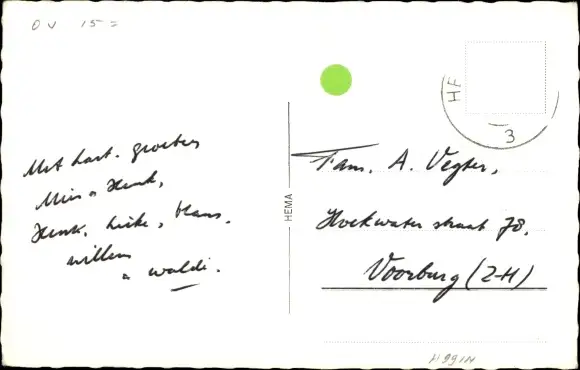 OV 15=
HE
3
Met hart. groeten
Mies + Henk,
Henk, Lieke, Hans,
Willem
+ Waldi.
HEMA
Fam. A. Vegter,
Hoekwater straat 78,
Voorburg (Z-H)
H991N